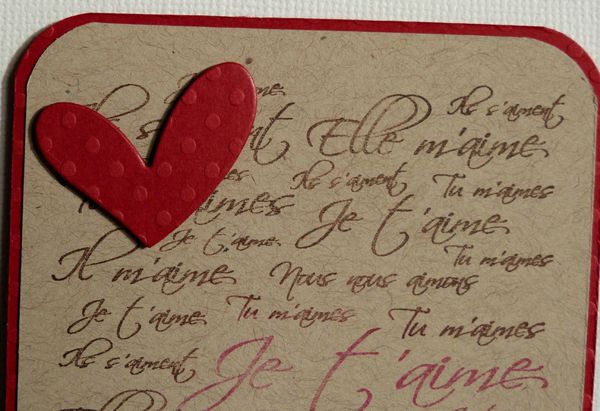 aime
Ils s'aiment
Elle m'aime
Ils s'aiment
Tu m'aimes
aimes
Je t'aime
Je t'aime
Tu m'aimes
Il m'aime
Nous nous aimons
Je t'aime
Tu m'aimes
Tu m'aimes
Ils s'aiment
Je t'aime